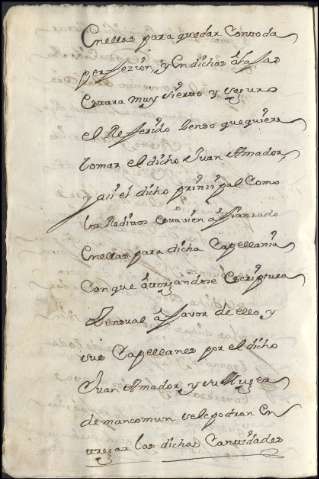 en ellas para quedar con toda
perfección, y en dichas dhas
estara muy sierto y seguro
el Refferido senso que quiere
tomar el dicho Juan Amador
y assi el dicho prinsipal como
los Reditos estavien affiansado
en ellas para dicha Capellania
con que otorgandose escriptura
Zensual a favor de ello, y
sus Capellanes por el dicho
Juan Amador, y su Muger
de mancomun sele podran en
tregar las dichas Cantidades